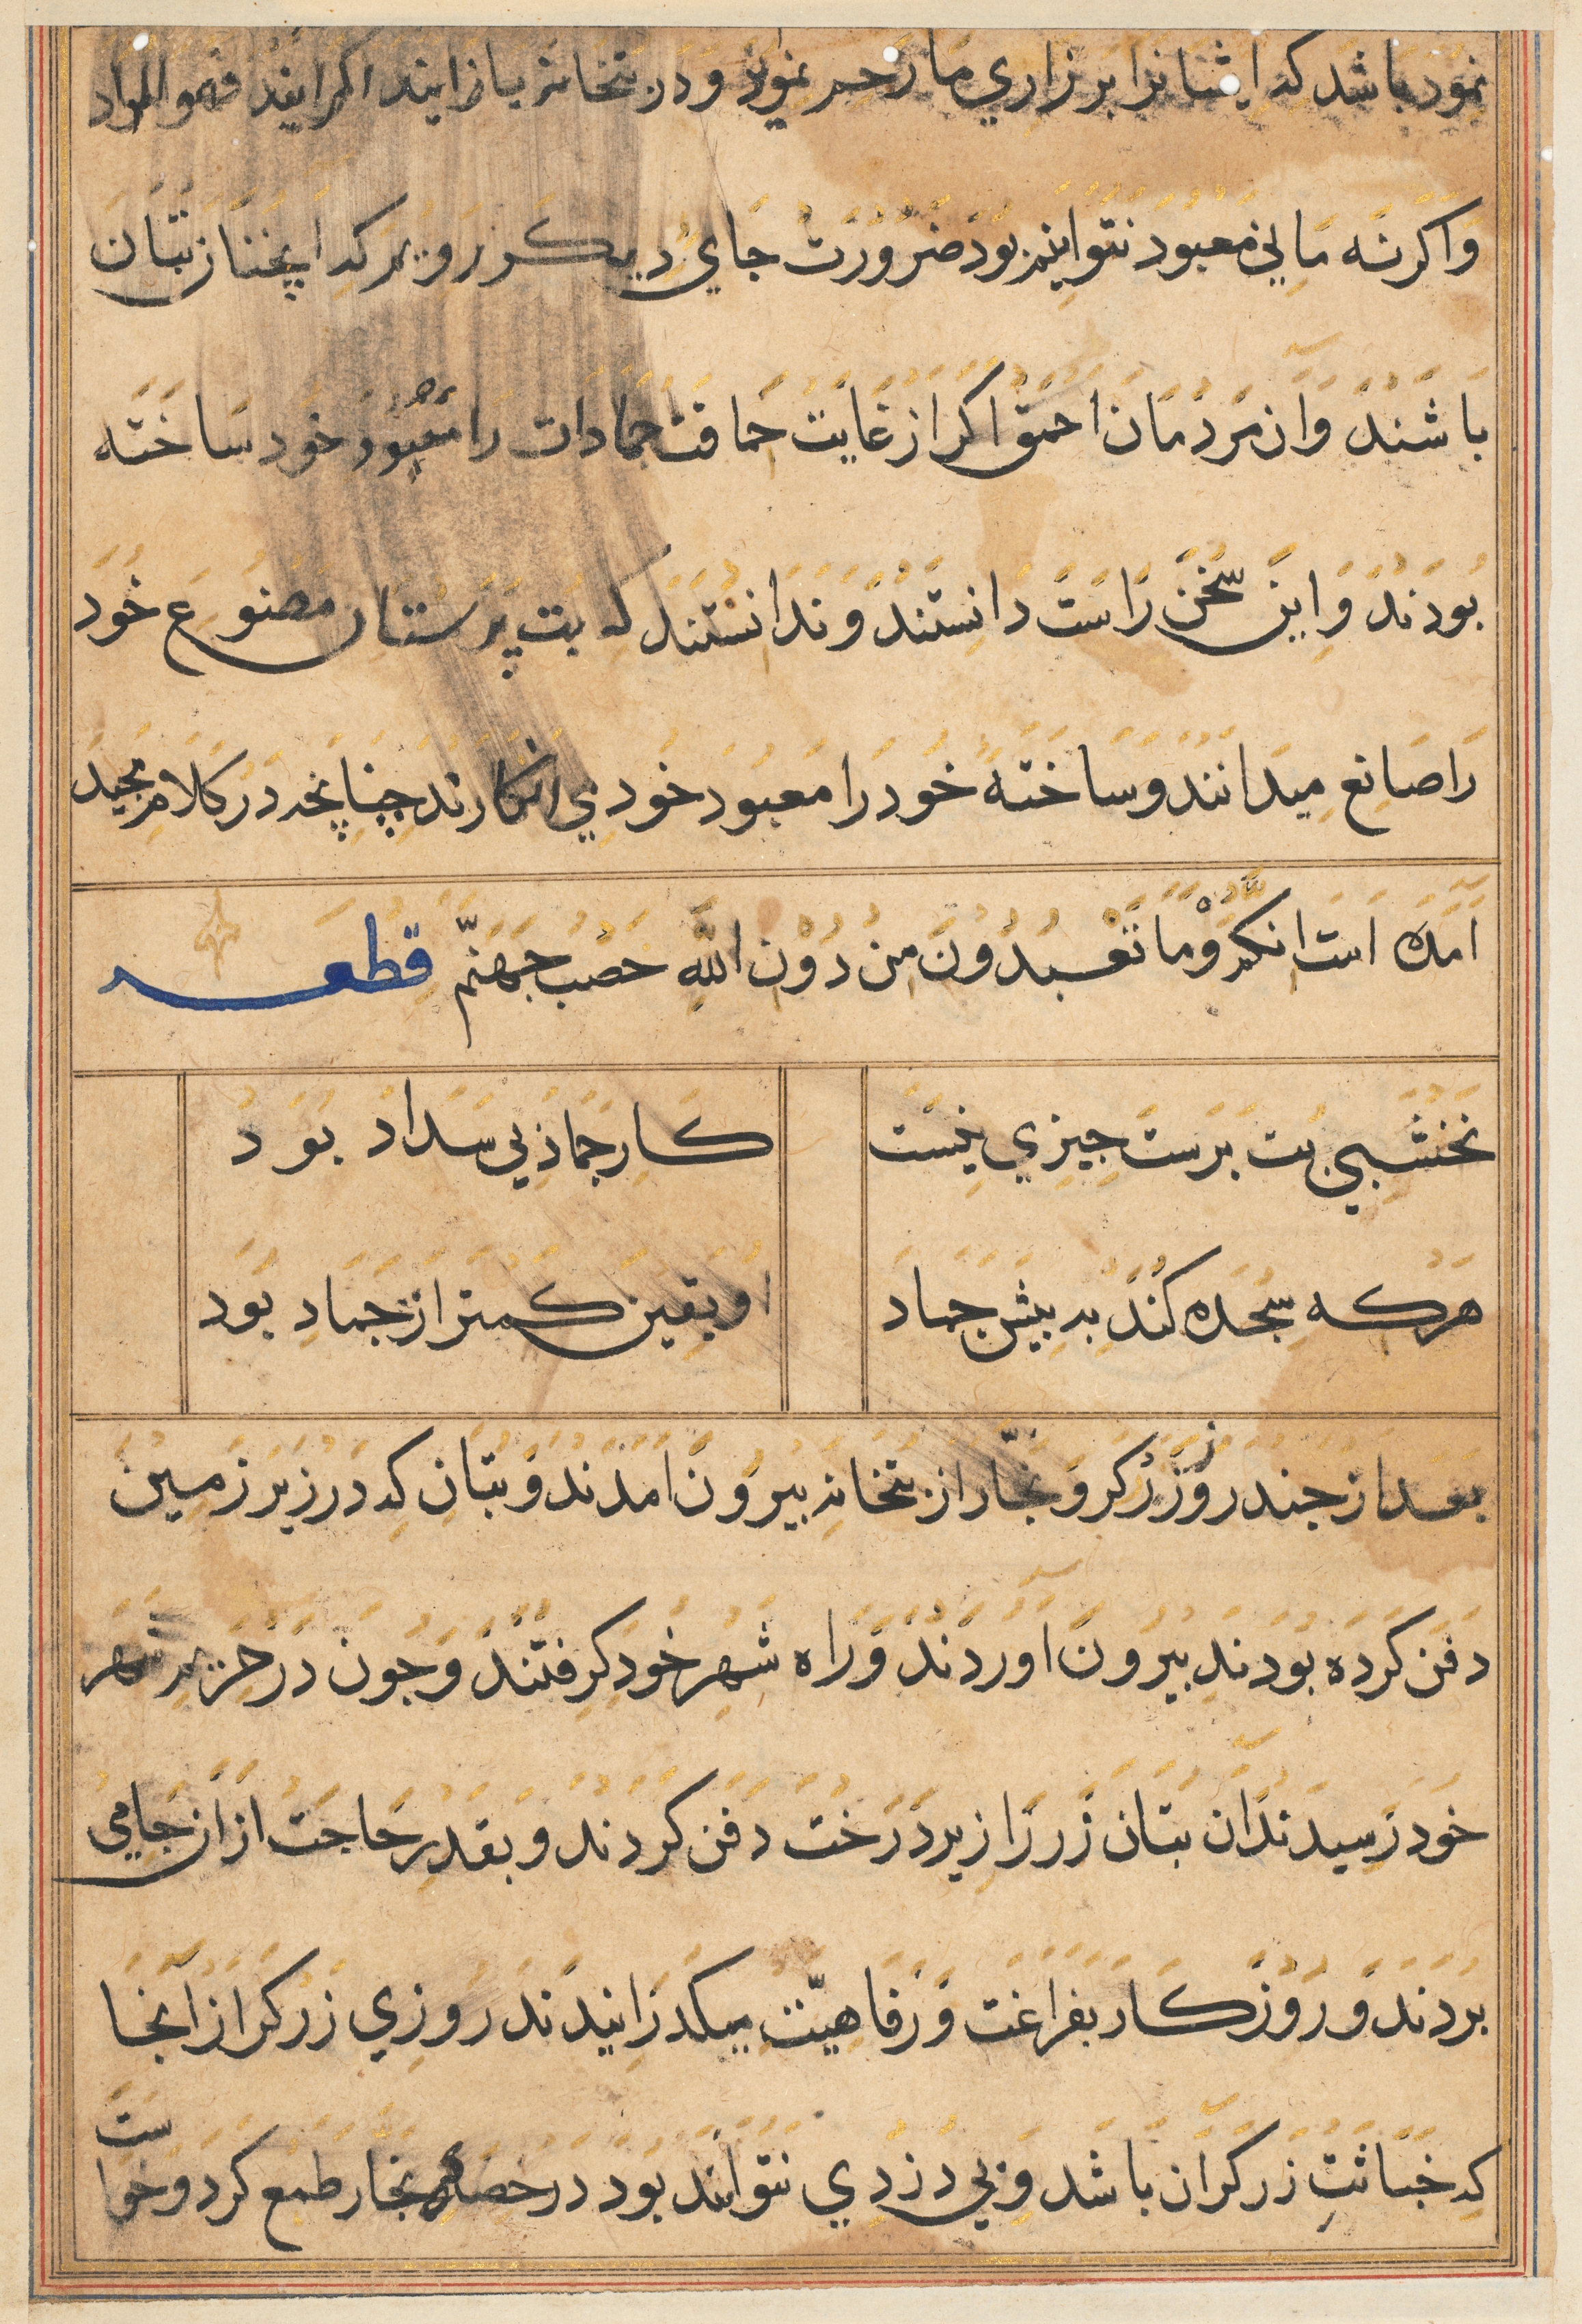 نمود باشد که ایشانرا بر زاری ما رحم نمود و در بتخانه باز ایند اکر ایند فهو المراد
واکرنه ما بی معبود نتوانیم بود ضرورت جای دیکر رویم که اینجنا از بتان
باشند وآن مردمان احمق اکر از غایت حماقت جمادات را معبود خود ساخته
بودند و این سخن راست دانستند و ندانستند که بت پرستان مصنوع خود
را صانع میدانند و ساخته خود را معبود خود می انکارند چنانچه در کلام مجید
آمده است انکم وما تعبدون من دون الله حصب جهنم قطعه
نخشبی بت برست جیزی نیست کار جماد بی سداد بود
هرکه سجده کند به بیش جماد او یقین کمتر از جماد بود
بعد از جند روز زرکر و نجار از بتخانه بیرون امدند و بتان که در زیر زمین
دفن کرده بودند بیرون آوردند و راه شهر خود کرفتند وجون در حریم شهر
خود رسیدند آن بتان زر را زیر درخت دفن کردند و بقدر حاجت از ان جای می
بردند و روزکار بفراغت و رفاهیت میکذرانیدند روزی زرکر از آنجا
که خباثت زرکران باشد و بی دزدی نتوانند بود در حصه نجار طمع کرد و خواست